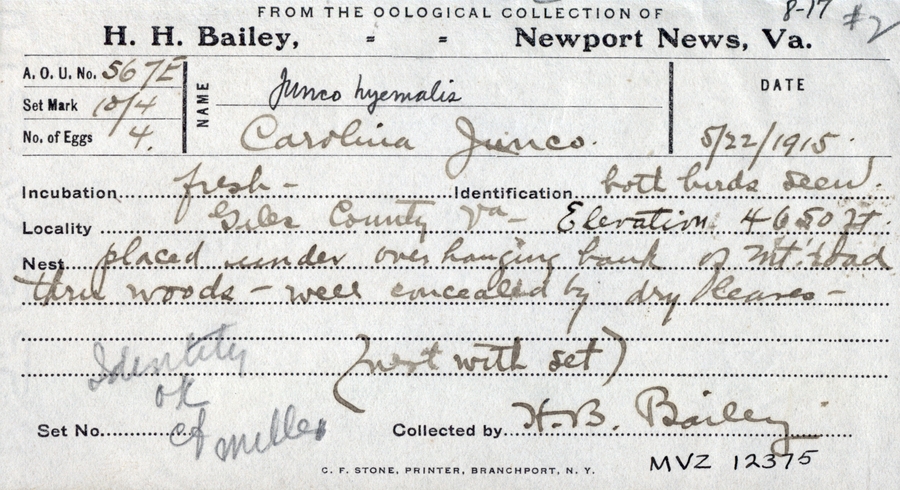 FROM THE OOLOGICAL COLLECTION OF
8-17 #2
H. H. Bailey, = = Newport News, Va.
A. O. U. No. 567E
Set Mark 10/4
No. of Eggs 4.
NAME
Junco hyemalis
Carolina Junco.
DATE
5/22/1915.
Incubation fresh- Identification both birds seen.
Locality Giles County Va- Elevation 4650 ft.
Nest placed under over hanging bank of Mt. road
thru woods - well concealed by dry leaves -
(nest with set)
Identity
ok
Set No. Collected by H. B. Bailey
Miller
C. F. STONE, PRINTER, BRANCHPORT, N. Y.
MVZ 12375